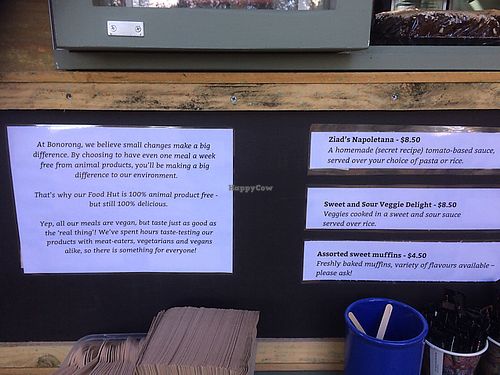 At Bonorong, we believe small changes make a big
difference. By choosing to have even one meal a week
free from animal products, you'll be making a big
difference to our environment.
That's why our Food Hut is 100% animal product free -
but still 100% delicious.
Yep, all our meals are vegan, but taste just as good as
the 'real thing'! We've spent hours taste-testing our
products with meat-eaters, vegetarians and vegans
alike, so there is something for everyone!
HappyCow
Ziad's Napoletana - $8.50
A homemade (secret recipe) tomato-based sauce,
served over your choice of pasta or rice.
Sweet and Sour Veggie Delight - $8.50
Veggies cooked in a sweet and sour sauce
served over rice.
Assorted sweet muffins - $4.50
Freshly baked muffins, variety of flavours available –
please ask!